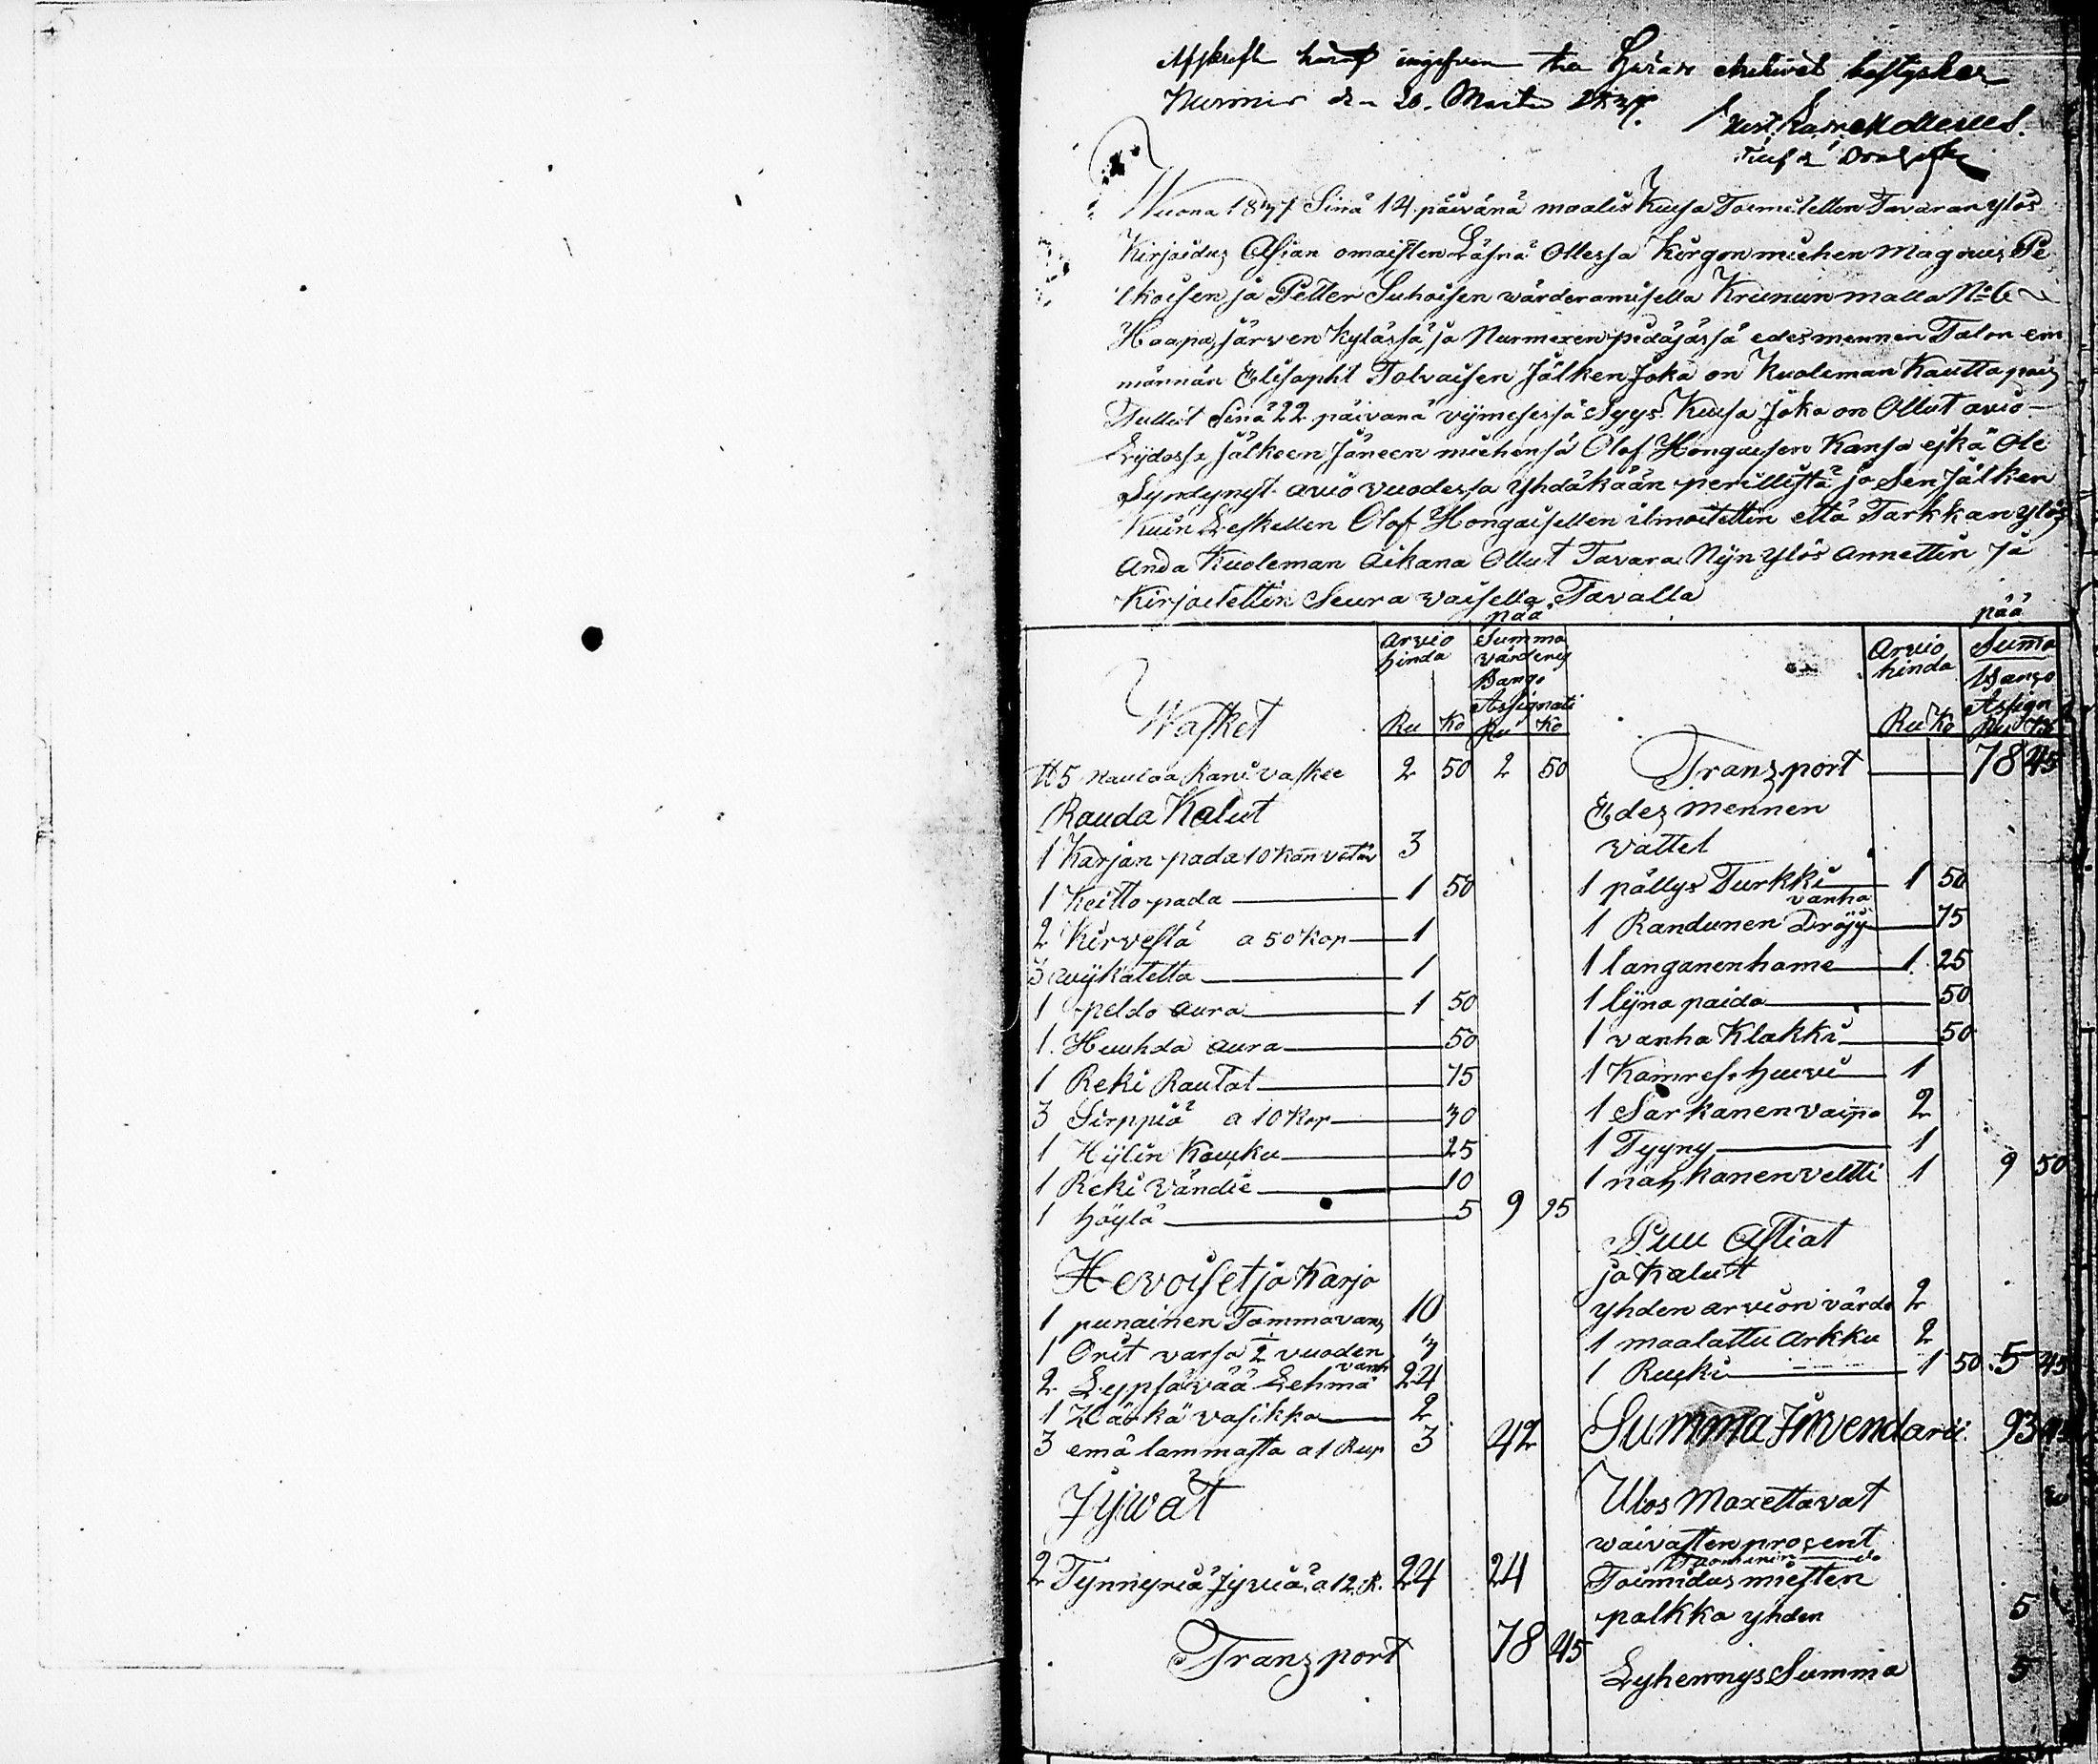 Afskrift häraf ingifven till Härads Archivet bestyrker
Nurmis den 20. Martii
Wuona 1837 Sinä 14 päivänä maalis Kuusa Toimitettin Tavaran ylös
Kirjoidus Asian omaisten Läsnä Ollessa Kirgon miehen Magnus Pe
lkoisen ja Petter Suhoisen wärderamisella Kruunun malla No 6
Haapajärven Kylässä ja Nurmexen pidäjässä edesmennen Talon em
männän Elisapht Tolvaisen Jälken Joka on Kuoleman Kautta pois
Tullut Sinä 22 päivänä vijmesessä Syys Kuusa Joka on Ollut avio-
Lijdossa Jälkeen Jäneen miehensä Olof Hongaisen Kansa eikä Ole
Syndynyt avio vuodessa yhdäkään perillistä ja Sen Jälken
Kuin Leskellen Olof Hongaisellen ilmoitettin että Tarkkan ylös
Anda Kuoleman aikana Ollut Tavara Nijn ylös Annettin Ja
Kirjoitettin Seura Vaisella Tavalla
Wasket Arvio hinda Ru Ko pää Summa värdering Bango Assignati Ru Ko
5 naulaa Kari vaskee 2 50 2 50
Rauda Kalut
1 Karjan pada 10 Kan vetäv 3
1 Keitto pada 1 50
2 Kirvestä a 50 Kop 1
3 wijkatetta 1
1 peldo aura 1 50
1 Huuhda aura 50
1 Reki Rautat 75
3 Sirppiä a 10 Kop 30
1 Hijlin Kouku 25
1 Reki Vändie 10
1 höylä 5 9 95
Hevoiset ja Karja
1 punainen Tamma vanh 10
1 Orit varsa 1/2 vuoden vanh 3
2 Lypsävää Lehmä 24
1 Härkä vasikka 2
3 emä lammasta a 1 Rup 3 42
Jywät
2 Tynnyriä Jyviä a 12 R. 24 24
Transport 78 45
Arvio hinda Ru Ko pää Suma Bango Assign Ru Ko
Transport 78 45
Edes mennen
vattet
1 pällys Turkki vanha 1 50
1 Randunen Dröijy 75
1 langanen hame 1 25
1 lijna paida 50
1 vanha Klakki 50
1 Kamres huivi 1
1 Sarkanen vaipa 2
1 Tyyny 1
1 nahkanen veltti 1 9 50
Puu Astiat
ja Kalutt
yhden arvion värde 2
1 maalattu arkku 2
1 Ruki 1 50 5 45
Summa Inventarii 93 45
Ulos Maxettavat
waivasten procent
Toimidus miesten
palkka yhden 5
Lyhennys Summa 5